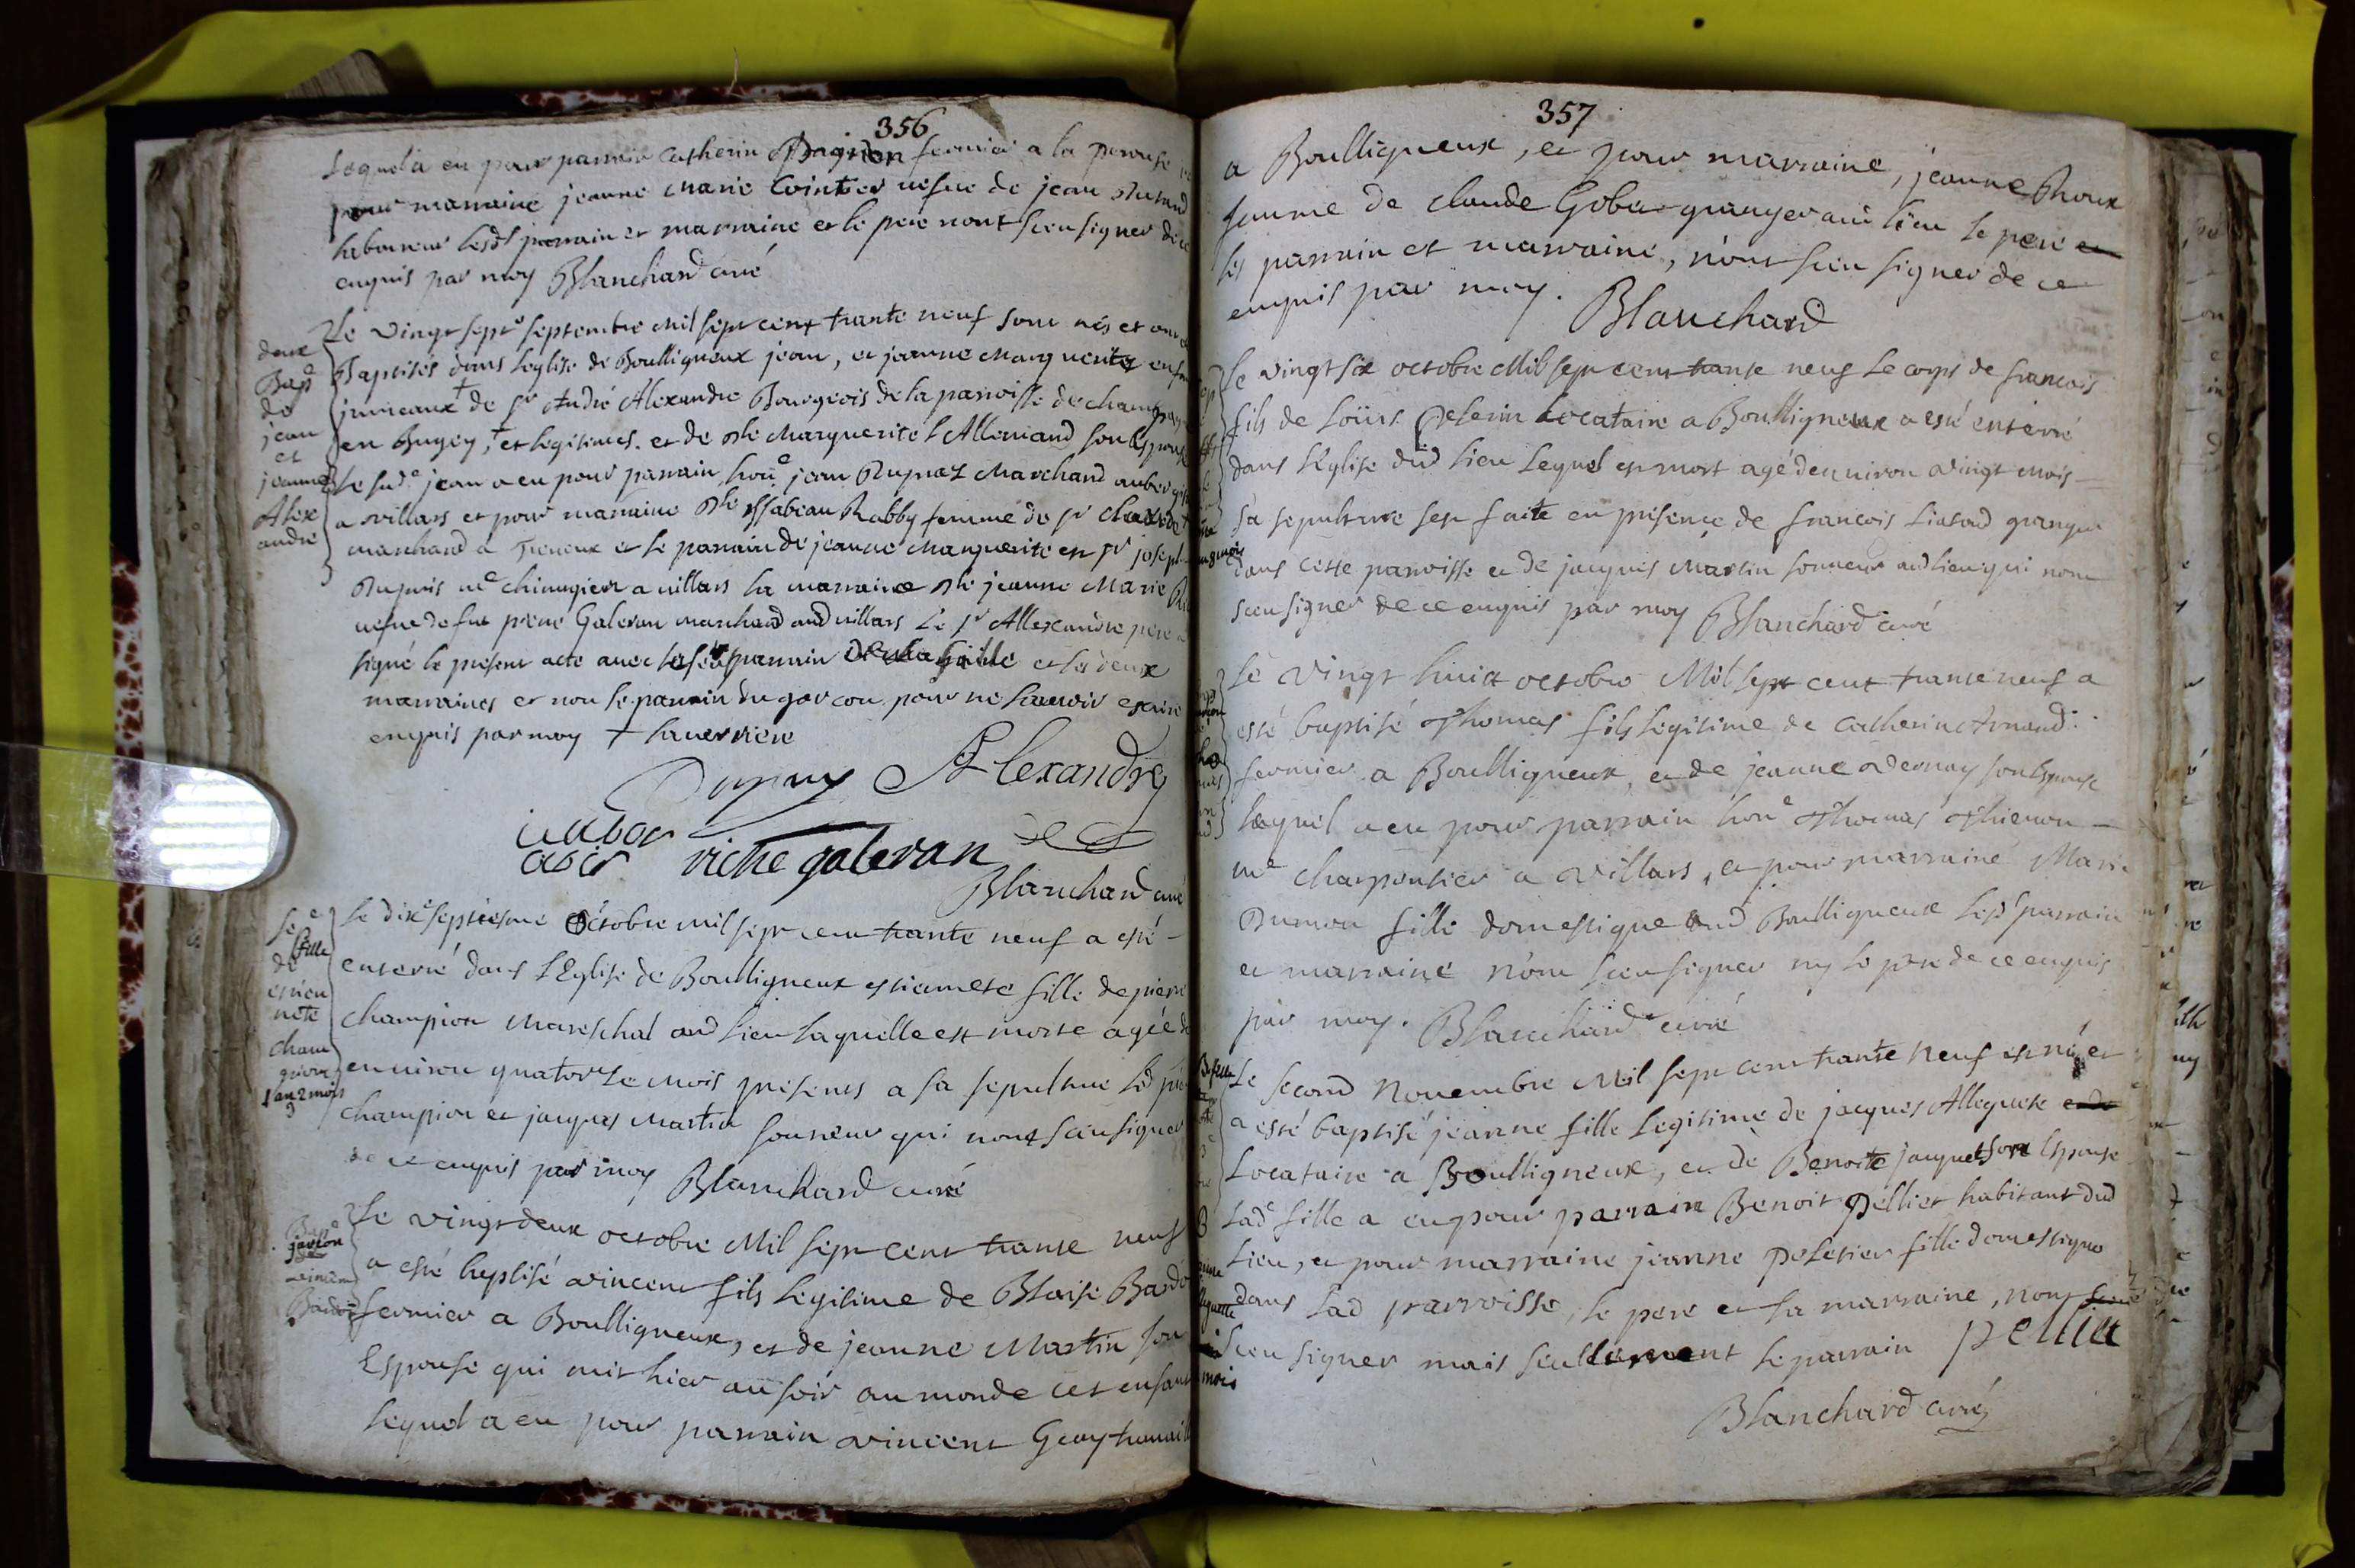 356
Lequel a eu pour parrain Catherin Pagnon fermier a la perouse
pour marraine jeanne Marie Cointier vefue de jean Durand
laboureur lesdts parrain et marraine et le pere nont sceu signer de ce
enquis par moy Blanchard curé
deux
Bape
de
jean
et
jeanne
Alex
andre
Le vingt septe septembre Mil sept cent trante neuf sont nés et ont
Baptisés dans Leglise de Boulligneux jean, et jeanne Marguerite
jumeaux + de sr André Alexandre Bourgeois de la parroisse de
en Bugey, + et legitimes. et de Dlle Marguerite L'Allemand son Espouse
Le sude jean a eu pour parrain hone jean Marchand
a villars et pour marraine Dlle Issabeau Rabby femme de sr
marchand a et le parrain de jeanne Marguerite est sr joseph
Dupuis me chirurgien a villars la marraine Dlle jeanne Marie
vefue de fut piere Galeran marchand aud villars Le sr Allexandre pere a
signé le présent acte avec parrain de la fille et les deux
marraines et non le parrain du garcon pour ne scavoir escrire
enquis par moy + laverriere
Dupuy Alexandre
riche galeran
Blanchard curé
Sere
fille
de
estien
nete
cham
pion
1 an 2 mois
Le dixe septiesme Octobre mil sept cent trante neuf a esté
enterré dans LEglise de Boulligneux estiennete fille de pierre
champion Mareschal aud lieu laquelle est morte agée de
environ quatorze mois presents a sa sepulture led
champion et jacques Martin sonneur qui nont sceu signer
de ce enquis par moy Blanchard curé
Bape
garcon
vincent
Bardo
Le vingt deux octobre Mil sept cent trante neuf
a esté baptisé vincent fils legitime de Blaise Bardo
fermier a Boulligneux, et de jeanne Martin son
Espouse qui mit hier au soir au monde cet enfant
lequel a eu pour parrain vincent
357
a Boulligneux, et pour marraine, jeanne Roux
femme de claude Gobu granger aud lieu le pere et
les parrain et marraine, n'ont sceu signer de ce
enquis par moy. Blanchard
Le vingt six octobre Mil sept cent trante neuf Le corps de francois
fils de Loüis Pelerin Locataire a Boulligneux a esté enterré
dans LEglise dud lieu Lequel est mort agé denviron vingt mois
Sa sepulture sest faite en présence de francois Liatard granger
dans cette parroisse et de jacques Martin sonneur aud lieu qui nont
sceu signer de ce enquis par moy Blanchard curé
Le vingt huict octobre Mil sept cent trante neuf a
esté baptisé Thomas fils legitime de Catherin Arnaud
fermier a Boulligneux, et de jeanne Vernay son Espouse
Lequel a eu pour parrain hone Thomas Thienon
me charpentier a Villars, et pour marraine Marie
Dumon fille domestique aud Boulligneux lesd parrain
et marraine n'ont sceu signer ny le pere de ce enquis
par moy. Blanchard curé
Le second Novembre Mil sept cent trante neuf est né et
a esté baptisé jeanne fille Legitime de jacques Allegrete et de
Locataire a Boulligneux, et de Benoite jacquet son Espouse
Lad fille a eu pour parrain Benoit Pellier habitant dud
Lieu, et pour marraine jeanne Peletier fille domestique
dans lad parroisse, le pere et la marraine, nont sceu
sceu signer mais seullement le parrain pellier
Blanchard curé